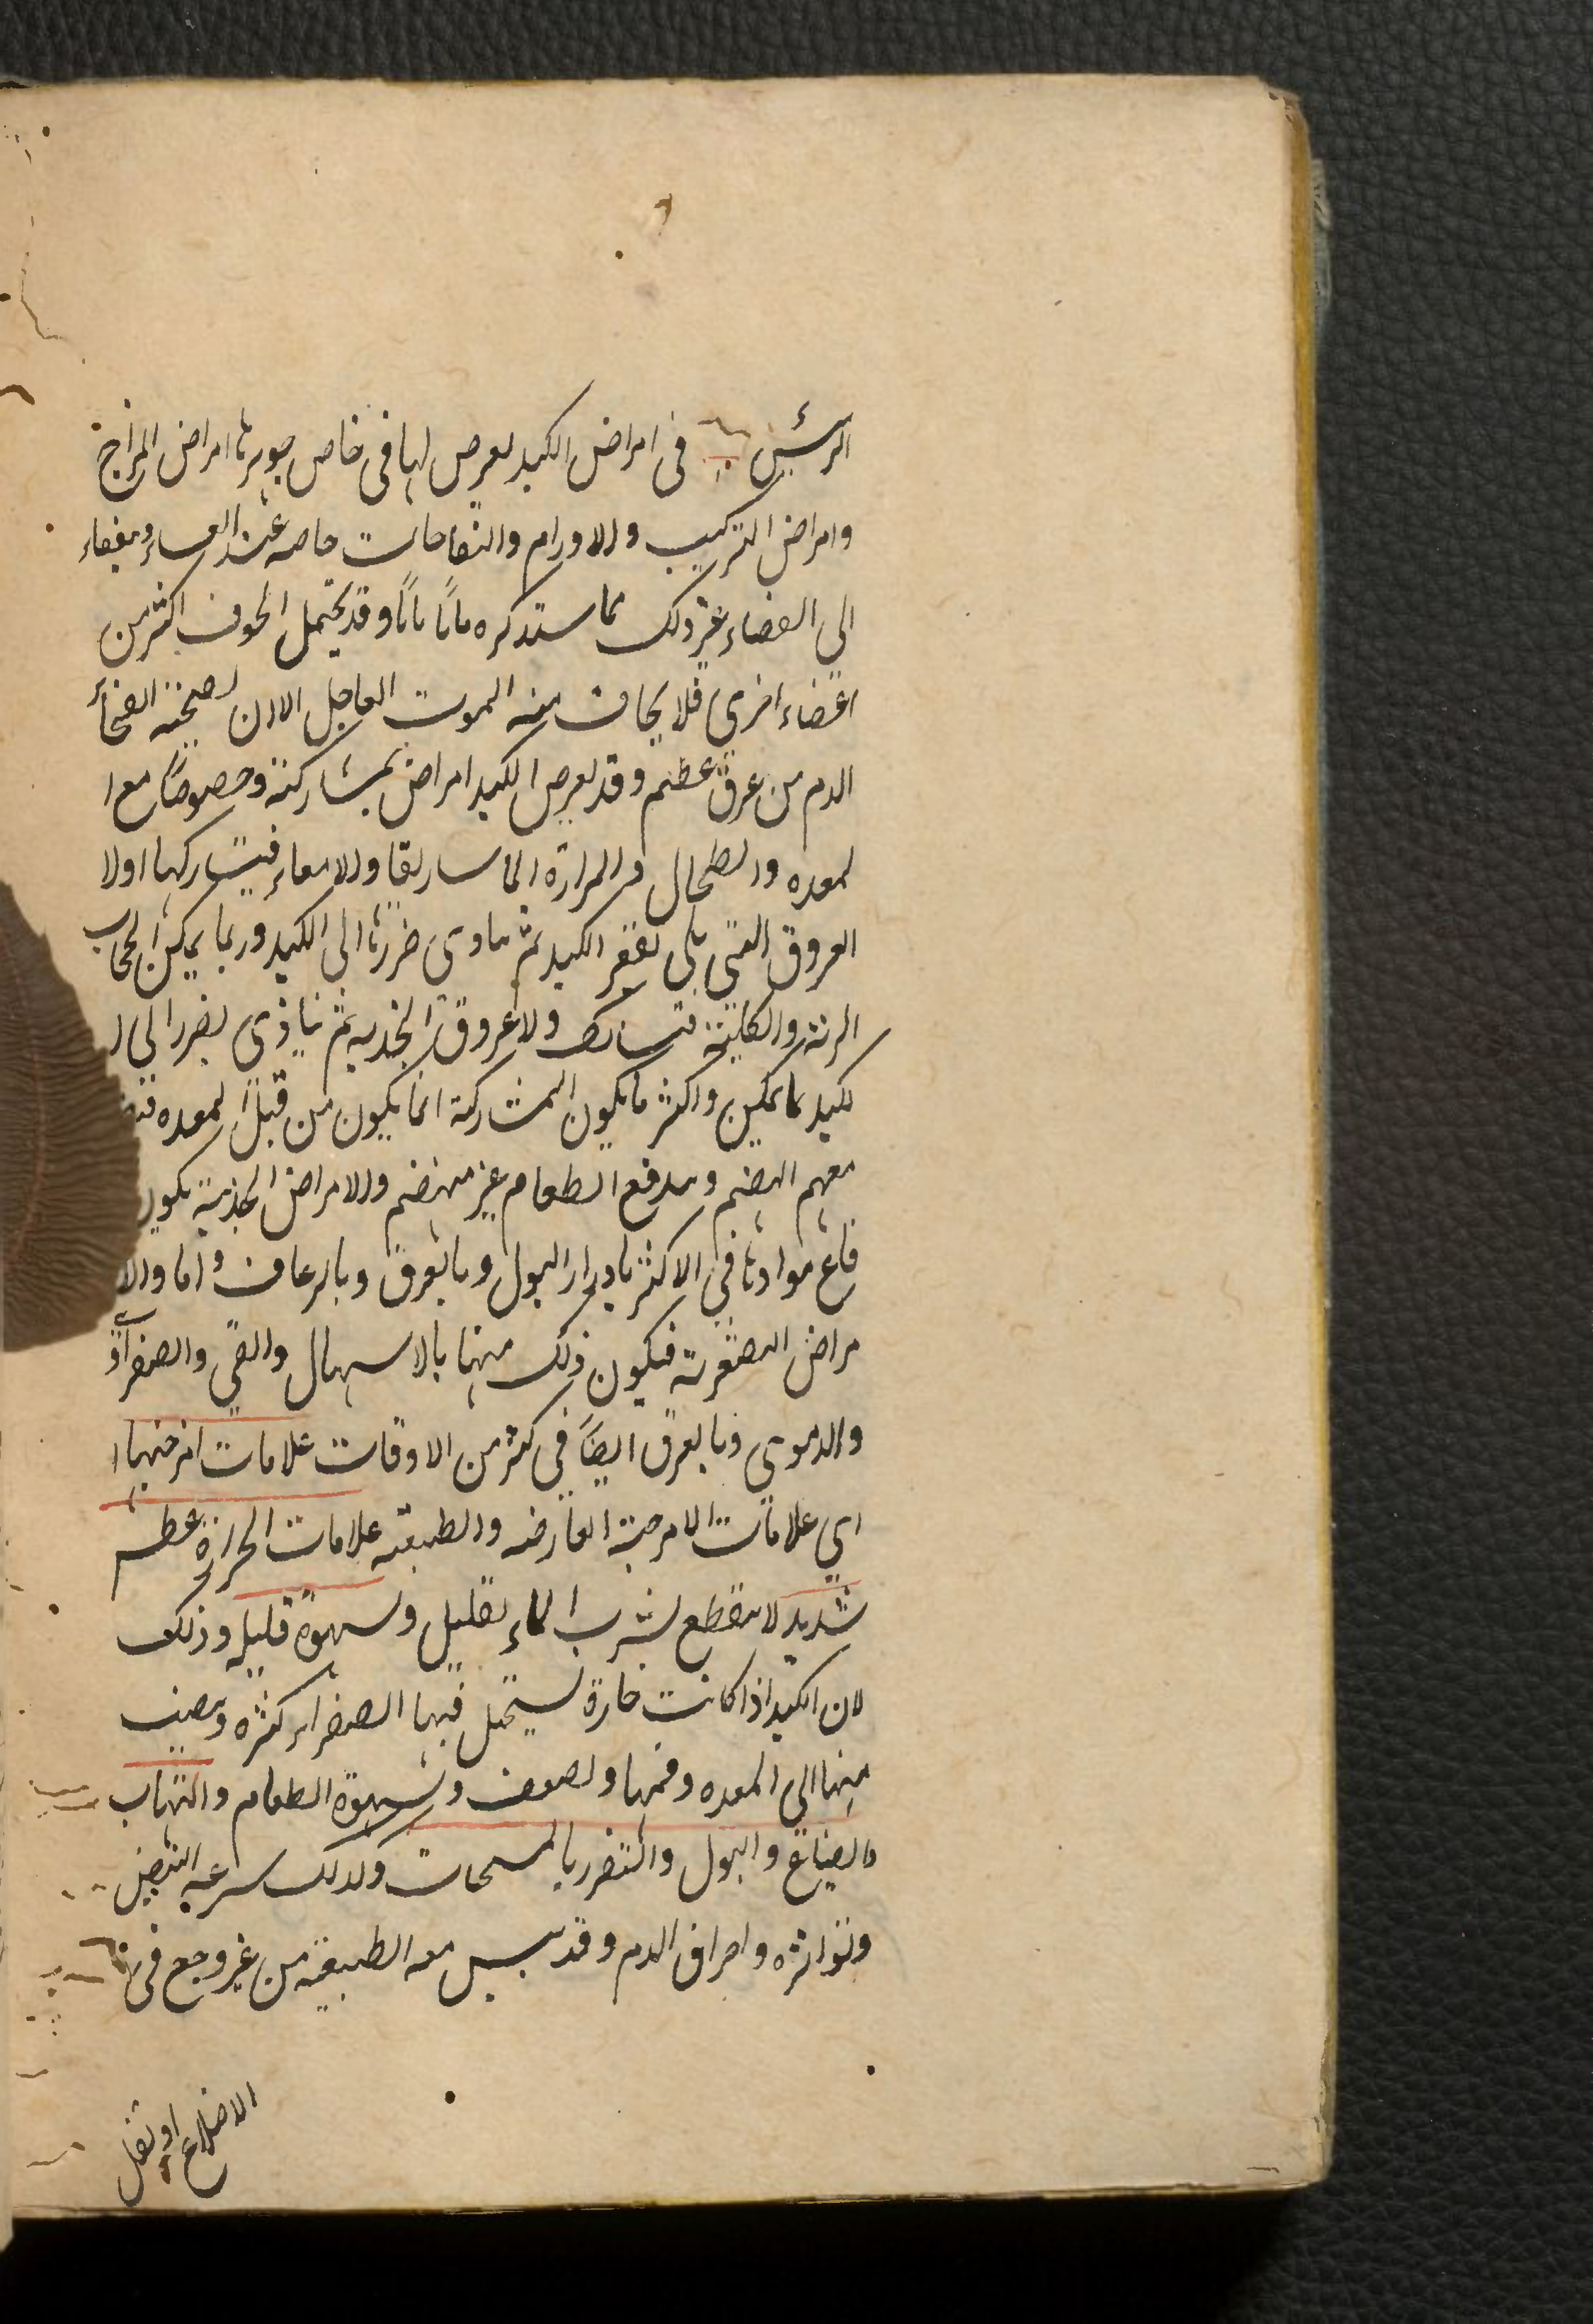 الرئيس في امراض الكبد يعرض لها في خاص جوهرها امراض المزاج
وامراض التركيب والاورام والنفاخات خاصه عند الغشاء وينفعاء
الى الفضاء غير ذلك مما ستذكره بابًا بابًا وقد يحتمل الخوف اكثر من
اعضاء اخرى فلا يخاف منه الموت العاجل الا ان يصحبه انفجار
الدم من عرق عظيم وقد يعرض الكبد امراض بمشاركة وخصوصًا مع ا
لمعده والطحال والمرارة الماساريقا والامعاء فيشاركها اولا
العروق التي يلي تقعر الكبد ثم يتادى ضررها الى الكبد وربما يمكن الحجاب
الرئة والكلية فتشارك ولا عروق الحدبه ثم يتاذى بضرر الى ا
لكبد كما يمكن واكثر ما يكون المشاركة انما يكون من قبل المعده
معهم الهضم ويدفع الطعام غير منهضم والامراض الحدبية يكون
فاع موادها في الاكثر بادرار البول وبالعرق وبالرعاف واما والا
مراض المقعرية فيكون ذلك منها بالاسهال والقي والصفراوى
والدموى وبالعرق ايضًا في كثر من الاوقات علامات امزجتها ا
اي علامات الامزجة العارضه والطبيعيه علامات الحرارة عطس
شديد لا ينقطع بشرب الماء بقليل وشهوة قليله وذلك
لان الكبد اذا كانت حارة يستحيل فيها الصفراء كثره وينصب
منها الى المعده وفمها ولصعف وشهوة الطعام والتهاب
وانصباغ والبول والتضرر بالمسخنات وكذلك سرعه النبض
وتواتره واحراق الدم وقد يبس معه الطبيعة من غير وجع في
الاضلاع او ثقل